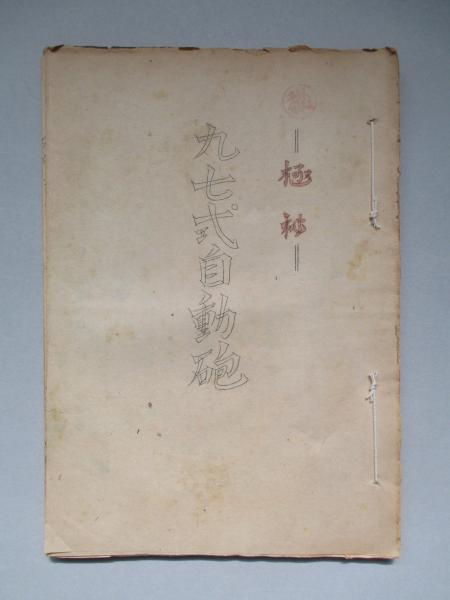 極秘
九七式自動砲